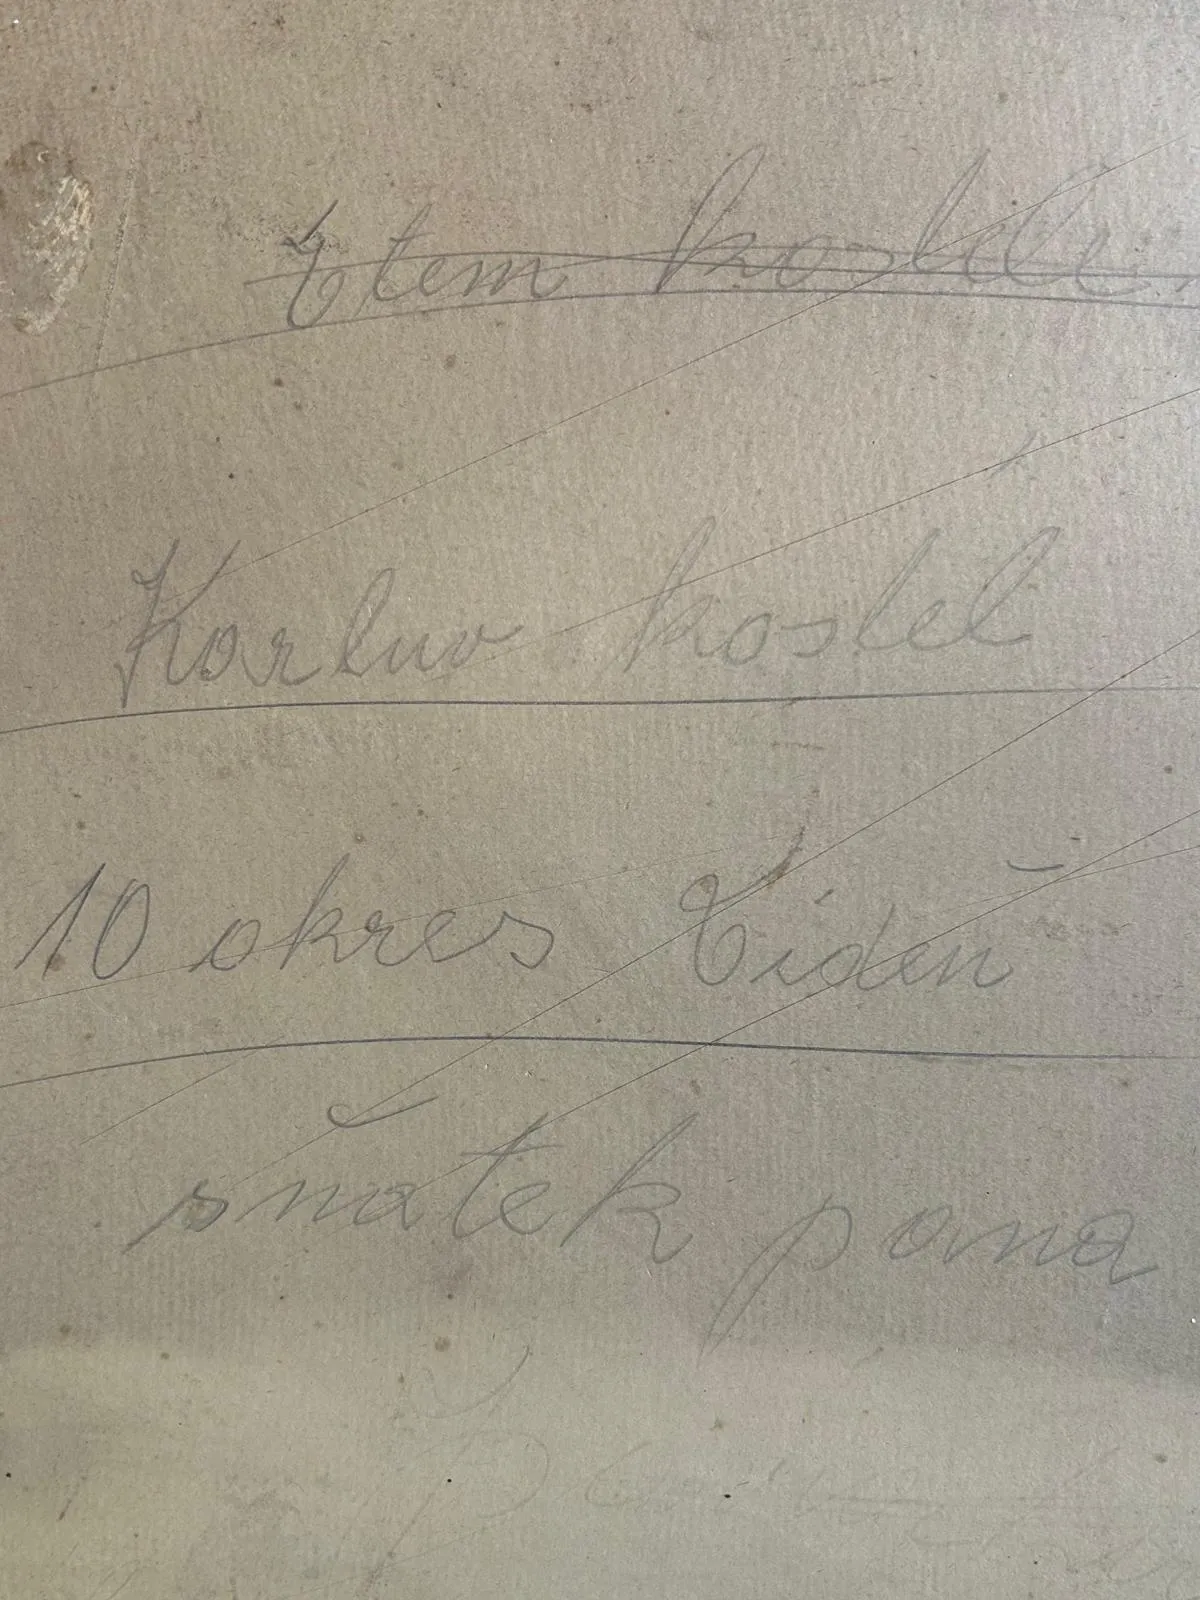 tem kosteli
Karluv kostel
10 okres Videň
sňatek pana